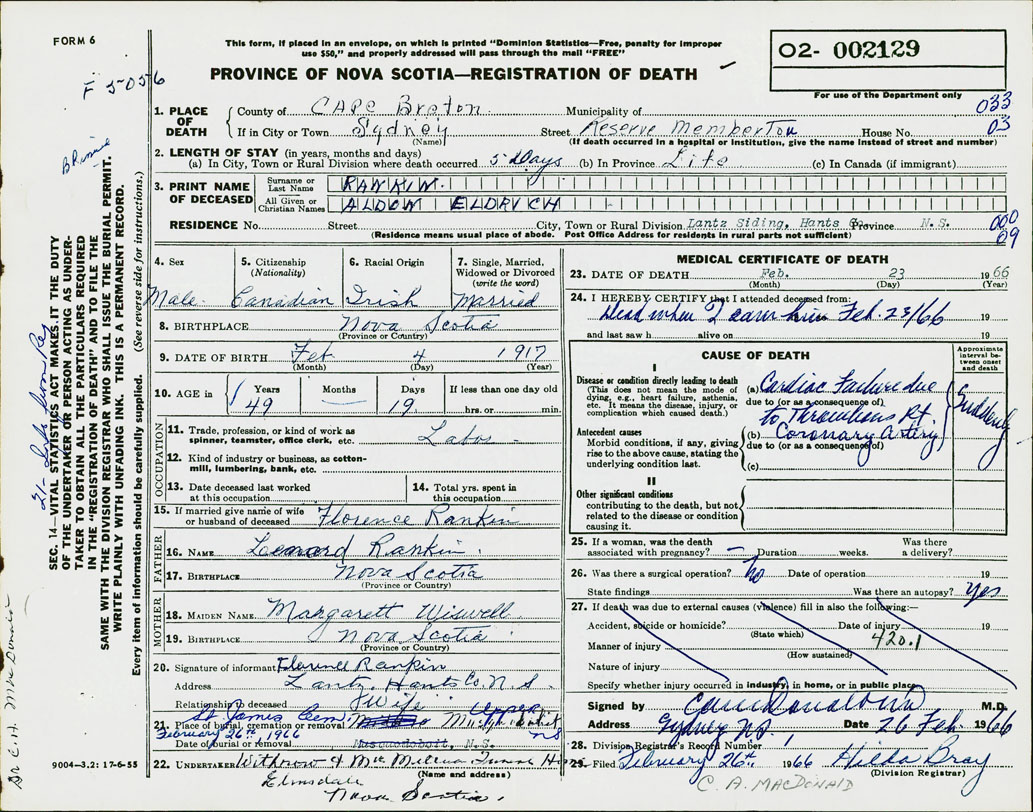 FORM 6
F 5056
This form, if placed in an envelope, on which is printed "Dominion Statistics—Free, penalty for improper
use $50," and properly addressed will pass through the mail "FREE"
PROVINCE OF NOVA SCOTIA—REGISTRATION OF DEATH
02- 002129
For use of the Department only
1. PLACE OF DEATH County of CAPE Breton Municipality of 033
If in City or Town Sydney Street Reserve Memberton House No. 03
(Name) (If death occurred in a hospital or institution, give the name instead of street and number)
2. LENGTH OF STAY (in years, months and days)
(a) In City, Town or Rural Division where death occurred 5 days (b) In Province Life (c) In Canada (if immigrant)
3. PRINT NAME OF DECEASED Surname or Last Name RANKIN
All Given or Christian Names ALDOM ELDRVCH
RESIDENCE No. Street City, Town or Rural Division Lantz Siding, Hants Co Province N.S. 000
(Residence means usual place of abode. Post Office Address for residents in rural parts not sufficient) 09
4. Sex 5. Citizenship (Nationality) 6. Racial Origin 7. Single, Married, Widowed or Divorced (write the word)
Male Canadian Irish Married
8. BIRTHPLACE Nova Scotia
(Province or Country)
9. DATE OF BIRTH Feb 4 1917
(Month) (Day) (Year)
10. AGE in Years Months Days If less than one day old
49 — 19 hrs. or min.
OCCUPATION
11. Trade, profession, or kind of work as spinner, teamster, office clerk, etc. Labor -
12. Kind of industry or business, as cotton-mill, lumbering, bank, etc.
13. Date deceased last worked at this occupation 14. Total yrs. spent in this occupation
15. If married give name of wife or husband of deceased Florence Rankin
FATHER
16. NAME Leonard Rankin
17. BIRTHPLACE Nova Scotia
(Province or Country)
MOTHER
18. MAIDEN NAME Margarett Wiswell
19. BIRTHPLACE Nova Scotia
(Province or Country)
20. Signature of informant Florence Rankin
Address Lantz Hants Co. N.S.
Relationship to deceased Wife
St James Cem. Upper
21. Place of burial, cremation or removal Musquodoboit
February 26th 1966 NS
Date of burial or removal Musquodoboit, N.S.
22. UNDERTAKER Withrow & Mac
(Name and address)
Elmsdale
Nova Scotia.
9004-3.2: 17-6-55
MEDICAL CERTIFICATE OF DEATH
23. DATE OF DEATH Feb. 23 1966
(Month) (Day) (Year)
24. I HEREBY CERTIFY that I attended deceased from:
Dead when I saw him Feb. 23/66 19
and last saw h alive on 19
CAUSE OF DEATH
Approximate interval between onset and death
I
Disease or condition directly leading to death
(This does not mean the mode of dying, e.g., heart failure, asthenia, etc. It means the disease, injury, or complication which caused death.)
(a) Cardiac Failure due
due to (or as a consequence of)
to Thrombosis Rt
Antecedent causes
Morbid conditions, if any, giving rise to the above cause, stating the underlying condition last.
(b) Coronary Artery
due to (or as a consequence of)
(c)
Suddenly
II
Other significant conditions
contributing to the death, but not related to the disease or condition causing it.
25. If a woman, was the death associated with pregnancy? — Duration weeks. Was there a delivery?
26. Was there a surgical operation? No Date of operation 19
State findings Was there an autopsy? Yes
27. If death was due to external causes (violence) fill in also the following:—
Accident, suicide or homicide? Date of injury 19
(State which)
Manner of injury 420.1
(How sustained)
Nature of injury
Specify whether injury occurred in industry, in home, or in public place
Signed by M.D.
Address Sydney NS. Date 26 Feb 1966
28. Division Registrar's Record Number
29. Filed February 26th 1966 Hilda Bray
(Division Registrar)
C. A. MACDONALD
SEC. 14—VITAL STATISTICS ACT MAKES IT THE DUTY
OF THE UNDERTAKER OR PERSON ACTING AS UNDER-
TAKER TO OBTAIN ALL THE PARTICULARS REQUIRED
IN THE "REGISTRATION OF DEATH" AND TO FILE THE
SAME WITH THE DIVISION REGISTRAR WHO SHALL ISSUE THE BURIAL PERMIT.
WRITE PLAINLY WITH UNFADING INK. THIS IS A PERMANENT RECORD.
Every item of information should be carefully supplied. (See reverse side for instructions.)